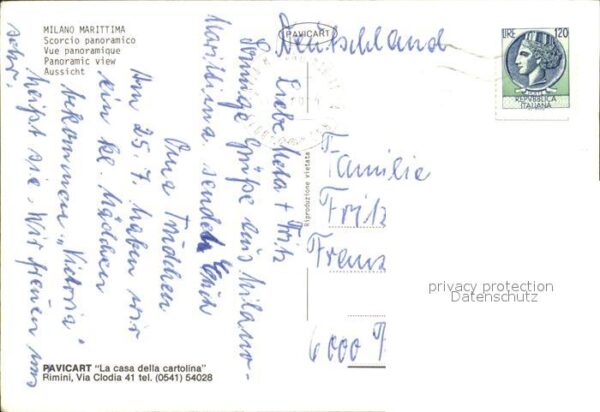 MILANO MARITTIMA
Scorcio panoramico
Vue panoramique
Panoramic view
Aussicht
PAVICART
Deutschland
LIRE 120
REPVBBLICA
ITALIANA
Liebe Meta + Fritz
Sonnige Grüße aus Milano-
Marittima sendet Euch
Oma Trudchen
Am 25.7. haben wir
ein kl. Mädchen
bekommen „Victoria"
heißt sie. Wir freuen uns
sehr.
Riproduzione vietata
Familie
Fritz
Franz
6000 F
privacy protection
Datenschutz
PAVICART "La casa della cartolina"
Rimini, Via Clodia 41 tel. (0541) 54028